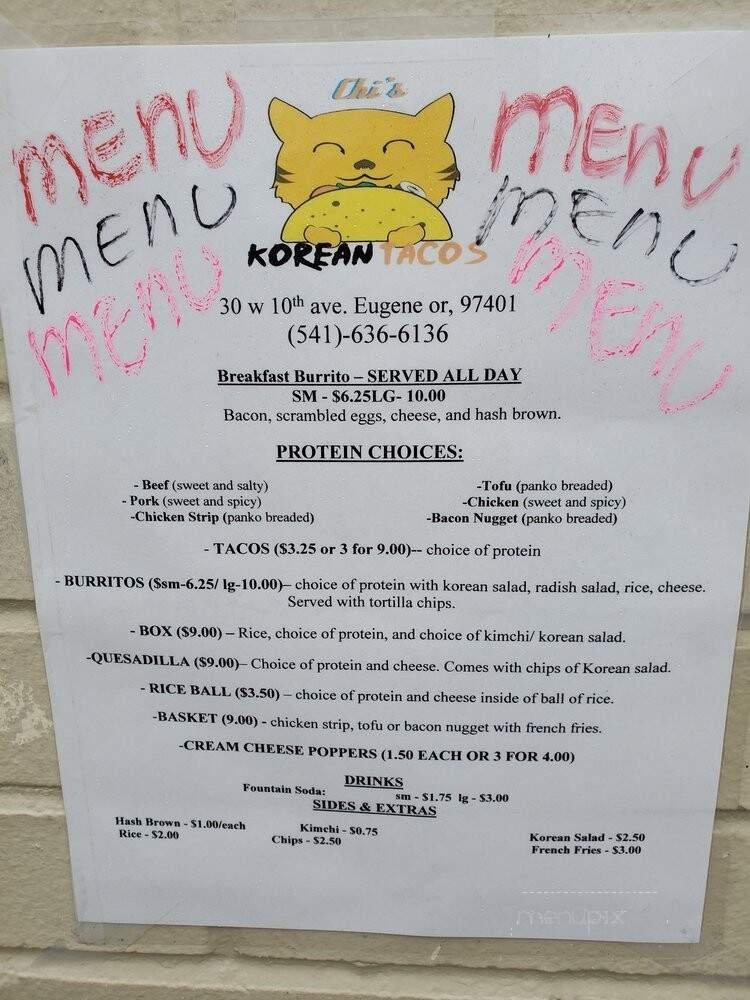 Chi's
MENU
MENU
MENU
MENU
MENU
MENU
KOREAN TACOS
30 w 10th ave. Eugene or, 97401
(541)-636-6136
Breakfast Burrito – SERVED ALL DAY
SM - $6.25LG- 10.00
Bacon, scrambled eggs, cheese, and hash brown.
PROTEIN CHOICES:
- Beef (sweet and salty)
- Pork (sweet and spicy)
-Chicken Strip (panko breaded)
-Tofu (panko breaded)
-Chicken (sweet and spicy)
-Bacon Nugget (panko breaded)
- TACOS ($3.25 or 3 for 9.00)-- choice of protein
- BURRITOS ($sm-6.25/ lg-10.00)– choice of protein with korean salad, radish salad, rice, cheese.
Served with tortilla chips.
- BOX ($9.00) – Rice, choice of protein, and choice of kimchi/ korean salad.
-QUESADILLA ($9.00)– Choice of protein and cheese. Comes with chips of Korean salad.
- RICE BALL ($3.50) – choice of protein and cheese inside of ball of rice.
-BASKET (9.00) - chicken strip, tofu or bacon nugget with french fries.
-CREAM CHEESE POPPERS (1.50 EACH OR 3 FOR 4.00)
DRINKS
Fountain Soda: sm - $1.75 lg - $3.00
SIDES & EXTRAS
Hash Brown - $1.00/each
Rice - $2.00
Kimchi - $0.75
Chips - $2.50
Korean Salad - $2.50
French Fries - $3.00
menupix